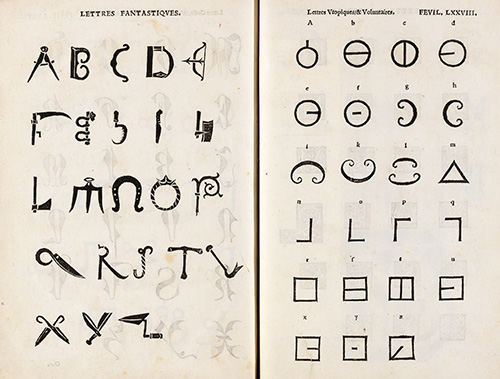 LETTRES FANTASTIQVES.
A B C D E
F G H I K
L M N O P
Q R S T V
X Y Z
Lettres Vtopiques, & Voluntaires. FEVIL. LXXVIII.
A b c d
e f g h
i k l m
n o p q
r ſ t u
x y z